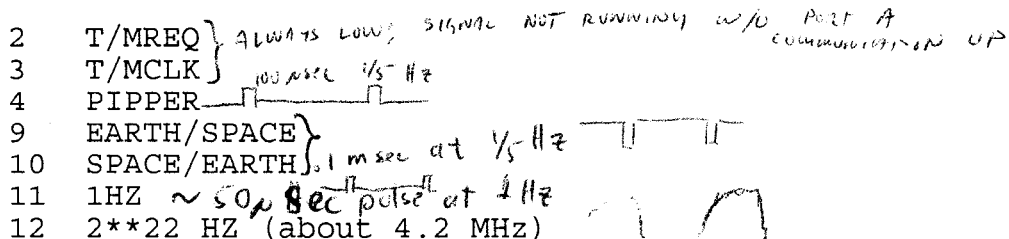 2 T/MREQ } ALWAYS LOW; SIGNAL NOT RUNNING W/O PORT A COMMUNICATION UP
3 T/MCLK
100 µsec 1/5 Hz
4 PIPPER
9 EARTH/SPACE
10 SPACE/EARTH } .1 msec at 1/5 Hz
11 1HZ ~ 50µ sec pulse at 1 Hz
12 2**22 HZ (about 4.2 MHz)